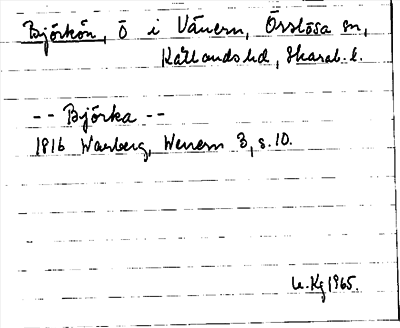 Björkön, ö i Vänern, Örslösa sn,
Kållands hd, Skarab. l.
-- Björka --
1816 Warberg, Wenern 3, s. 10.
Kg 1965.